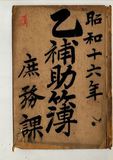 昭和十六年
乙補助簿
庶務課